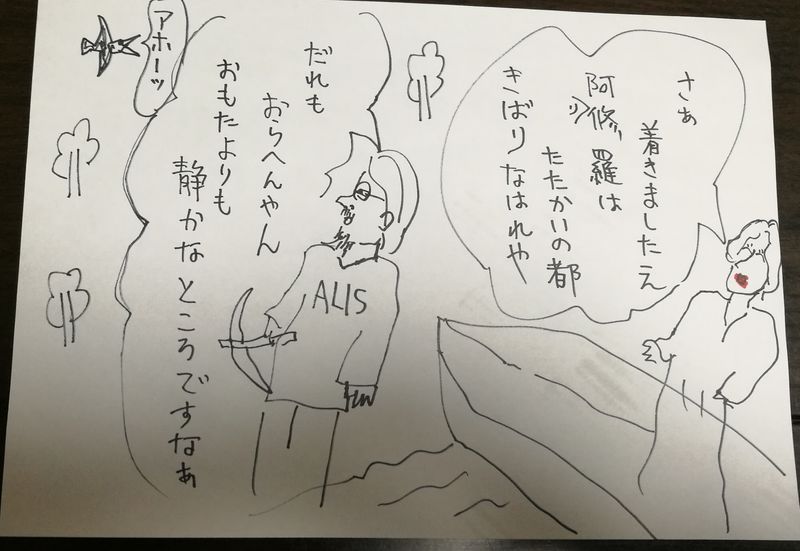 さぁ
着きましたえ
阿修羅は
たたかいの都
きばりなはれや
だれも
おらへんやん
おもたよりも
静かなところですなぁ
アホーッ
ALIS